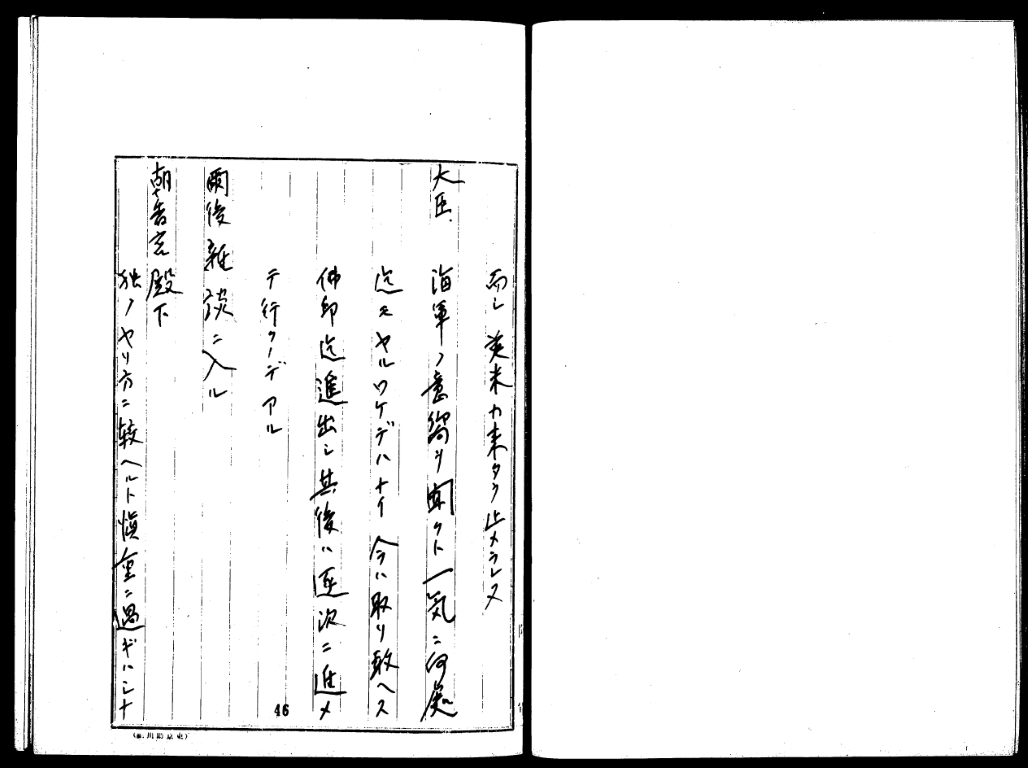 而シ英米カ来タラ止メラレヌ
大臣 海軍ノ意嚮ヲ聞クト一気ニ何処
迄モヤルワケデハナイ今ハ取リ敢ヘス
佛印迄進出シ其後ハ逐次ニ進メ
テ行クノデアル
爾後雑談ニ入ル
朝香宮殿下
独ノヤリ方ニ較ヘルト慎重ニ過ギハシナ
46